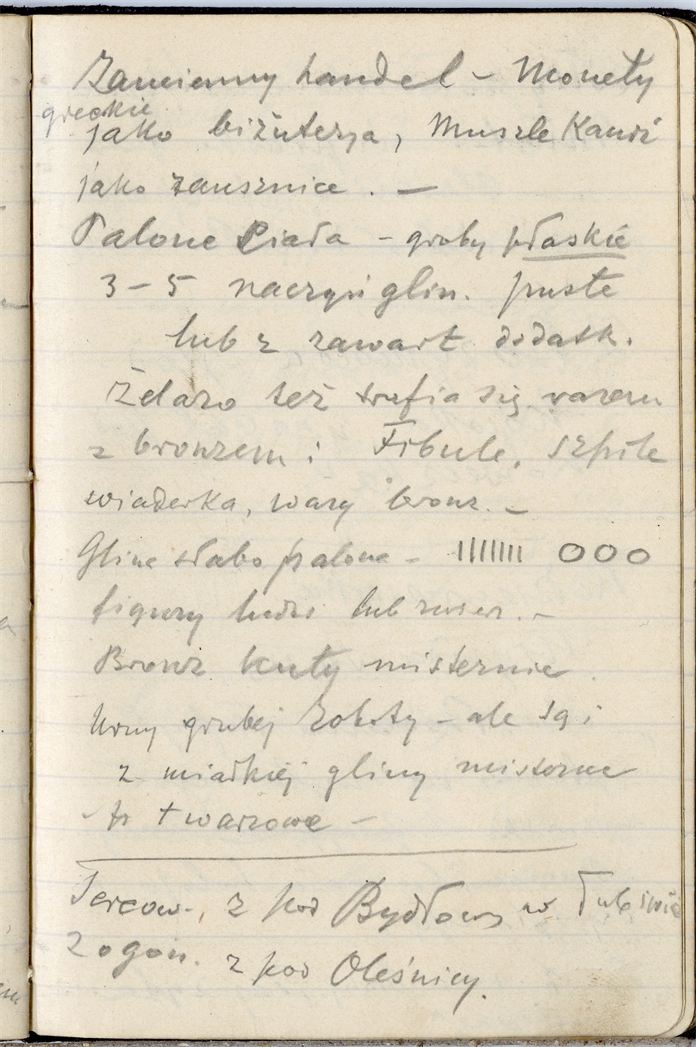 Zamienny handel – Monety
greckie
jako biżuterya, Muszle Kauri
jako zausznice. —
Palone Ciała – groby płaskie
3–5 naczyń glin. puste
lub z zawart dodatk.
Żelazo też trafia się razem
z bronzem: Fibule, szpile
wiaderka, wazy bronz. –
Glina słabo palona – ||||||| OOO
figury ludzi lub zwierz. –
Bronz kuty misternie
Urny grubej roboty – ale są i
z miałkiej gliny misterne
tr twarzowe –
Sercow., z pod Bydłowy w
z ogon. z pod Oleśnicy.